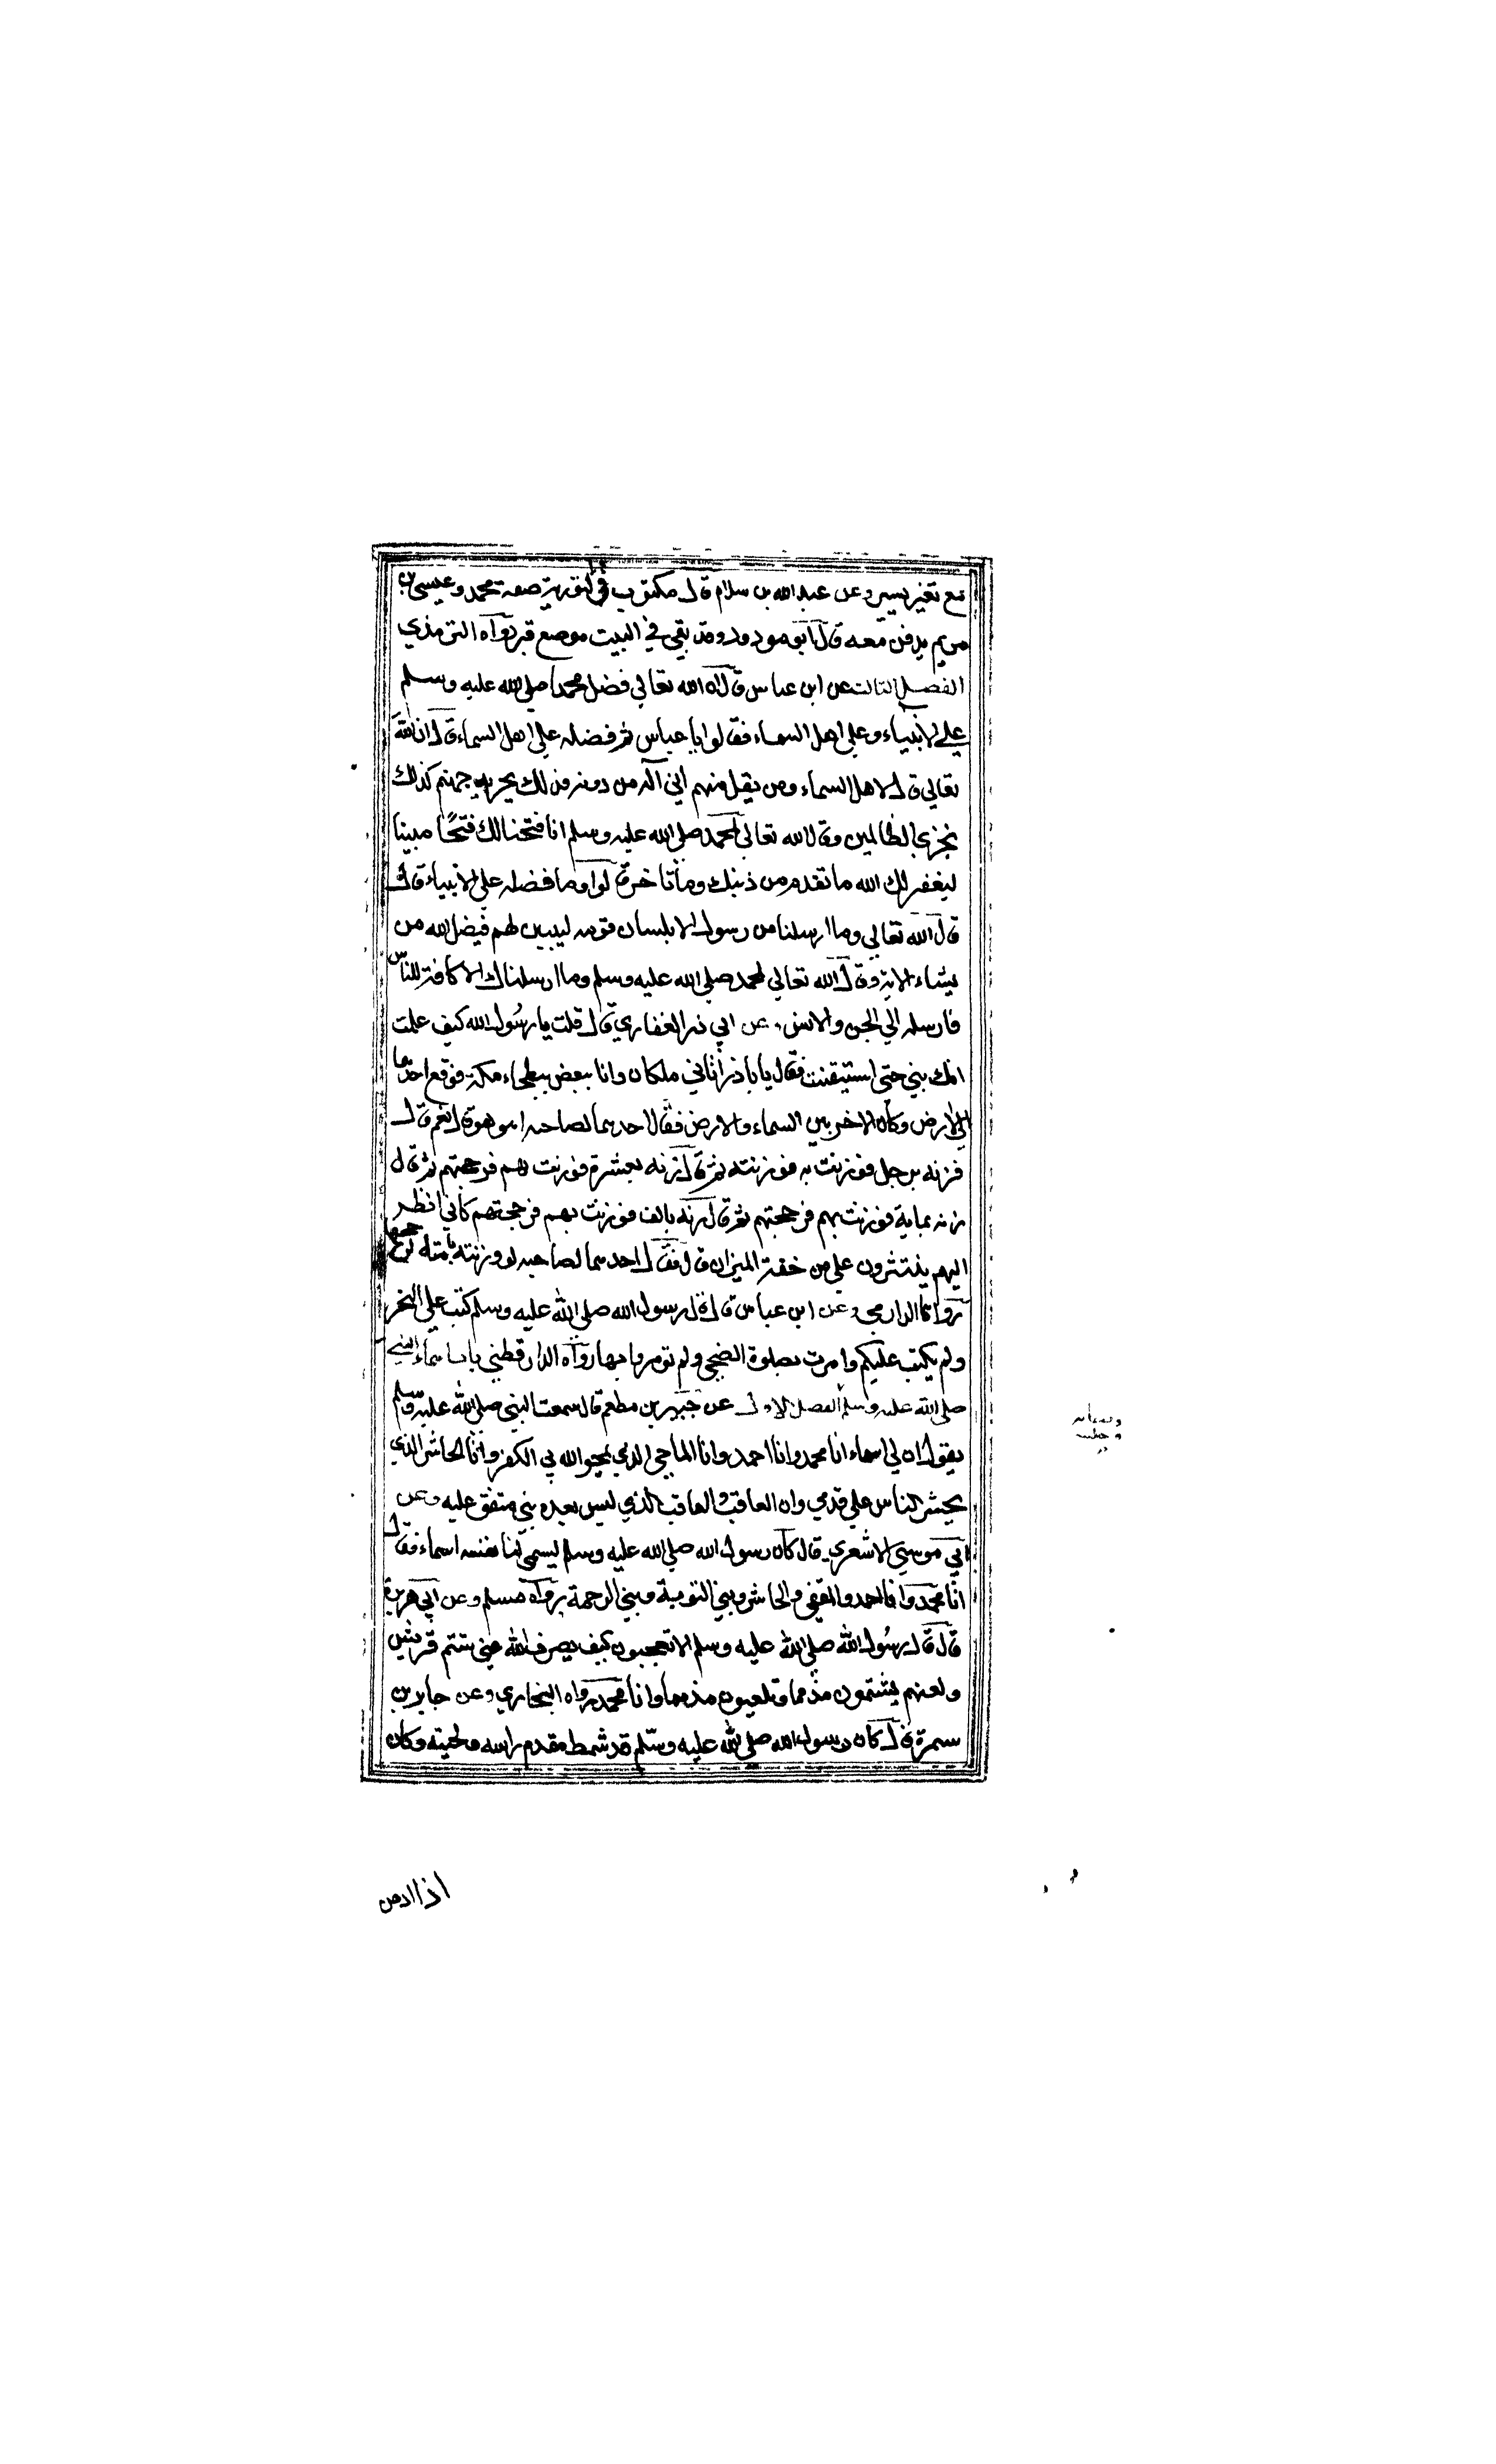 مع تغير يسير وعن عبد الله بن سلام قال مكتوب في التورية صفة محمد وعيسى بن
مريم يدفن معه قال ابو مودود وقد بقي في البيت موضع قبر رواه الترمذي
الفصل الثالث عن ابن عباس قال ان الله تعالي فضل محمدا صلي الله عليه وسلم
علي الانبياء وعلي اهل السماء فقالوا يا با عباس ثم فضله علي اهل السماء قال ان الله
تعالي قال لاهل السماء ومن يقل منهم اني اله من دونه فذلك نجزيه جهنم كذلك
نجزي الظالمين وقال الله تعالي لمحمد صلي الله عليه وسلم انا فتحنا لك فتحًا مبينا
ليغفر لك الله ما تقدم من ذنبك وما تاخر قالوا وما فضله علي الانبياء قال
قال الله تعالي وما ارسلنا من رسول الا بلسان قومه ليبين لهم فيضل الله من
يشاء الاية وقال الله تعالي لمحمد صلي الله عليه وسلم وما ارسلناك الا كافة للناس
فارسله الي الجن والانس وعن ابي ذر الغفاري قال قلت يا رسُول الله كيف علمت
انك نبي حتى استيقنت فقال يا باذر اتاني ملكان وانا ببعض بطحاء مكة فوقع احدهما
الي الارض وكان الاخر بين السماء والارض فقال احدهما لصاحبه اهو هو قال نعم قال
فزنه برجل فوزنت به فوزنته ثم قال زنه بعشرة فوزنت بهم فرجحتهم ثم قال
زنه بماية فوزنت بهم فرجحتهم ثم قال زنه بالف فوزنت بهم فرجحتهم كاني انظر
اليهم ينتثرون علي من خفة الميزان قال فقال احدهما لصاحبه لو وزنته بامته لرجحها
رواهما الدارمي وعن ابن عباس قال قال رسول الله صلي الله عليه وسلم كتب علي النحر
ولم يكتب عليكم وامرت بصلوة الضحي ولم تومروا بها رواه الدارقطني باب اسماء النبي
صلي الله عليه وسلم الفصل الاول عن جبير بن مطعم قال سمعت النبي صلي الله عليه وسلم
يقول ان لي اسماء انا محمد وانا احمد وانا الماحي الذي يمحو الله بي الكفر وانا الحاشر الذي
يحشر الناس علي قدمي وانا العاقب والعاقب الذي ليس بعده نبي متفق عليه وعن
ابي موسي الاشعري قال كان رسول الله صلي الله عليه وسلم يسمي لنا نفسه اسماء فقال
انا محمد وانا احمد والمقفي والحاشر ونبي التوبة ونبي الرحمة رواه مسلم وعن ابي هريرة
قال قال رسُول الله صلي الله عليه وسلم الا تعجبون كيف يصرف الله عني شتم قريش
ولعنهم يشتمون مذمما ويلعنون مذمما وانا محمد رواه البخاري وعن جابر بن
سمرة قال كان رسول الله صلي الله عليه وسلم قد شمط مقدم راسه ولحيته وكان
اذا ادهن